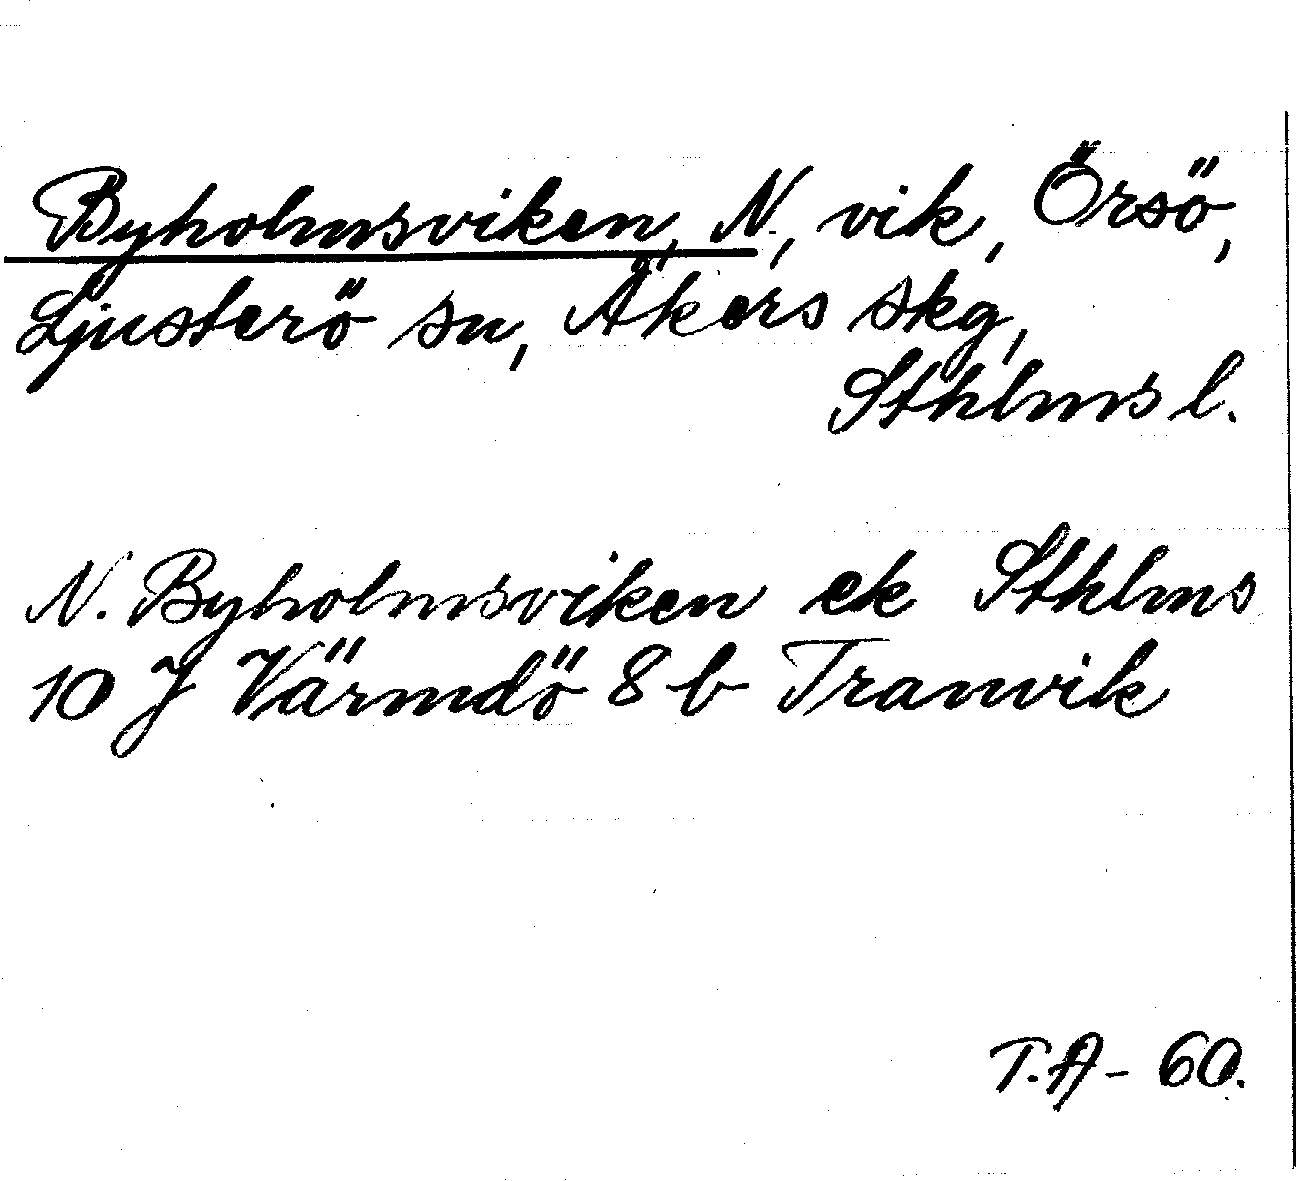 Byholmsviken, N., vik, Örsö,
Ljusterö sn, Åkers skg,
Sthlms l.
N. Byholmsviken ek Sthlms
10 J Värmdö 8 b Tranvik
T.A - 60.